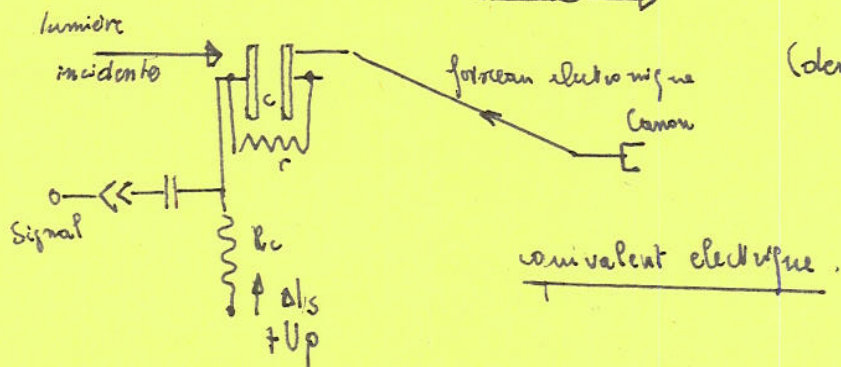 lumière
incidente
C
r
faisceau electronique
(der
Canon
Signal
Rc
ΔUs
+Up
equivalent electrique.